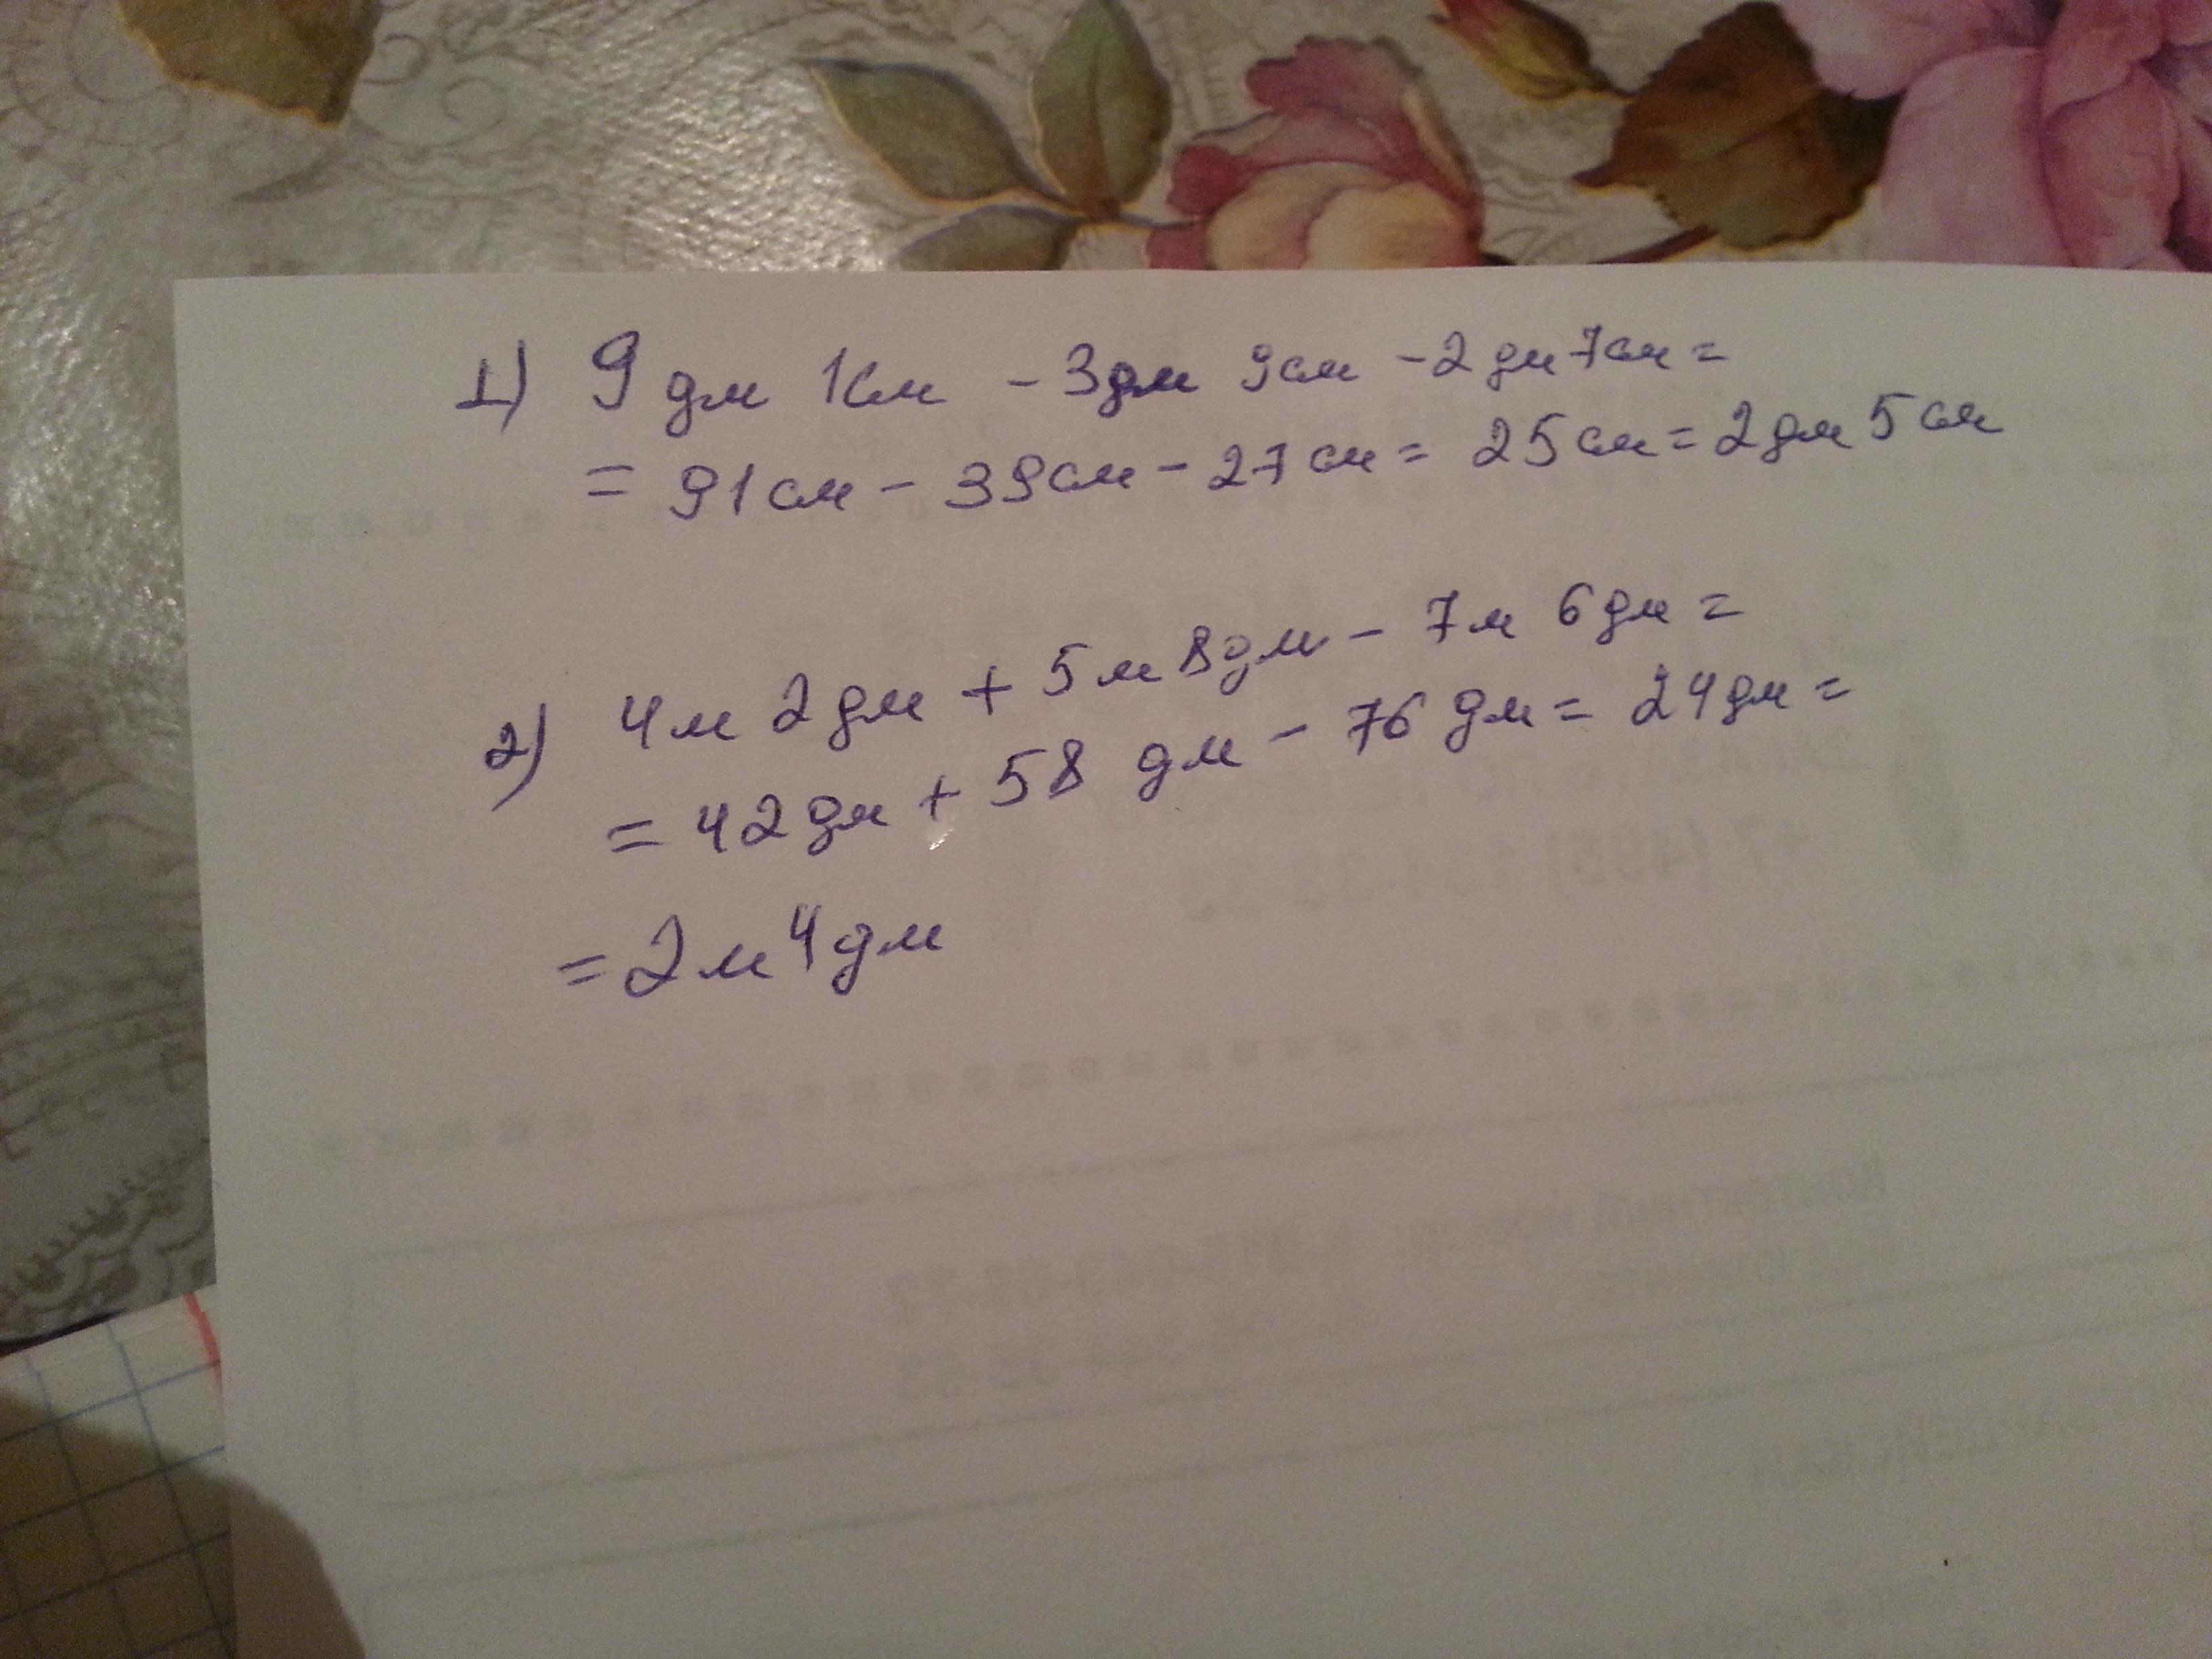 1) 9 дм 1см - 3дм 9см - 2 дм 7см =
= 91см - 39см - 27см = 25см = 2дм 5см
2) 4м 2дм + 5м 8дм - 7м 6дм =
= 42дм + 58 дм - 76 дм = 24дм =
= 2м 4дм